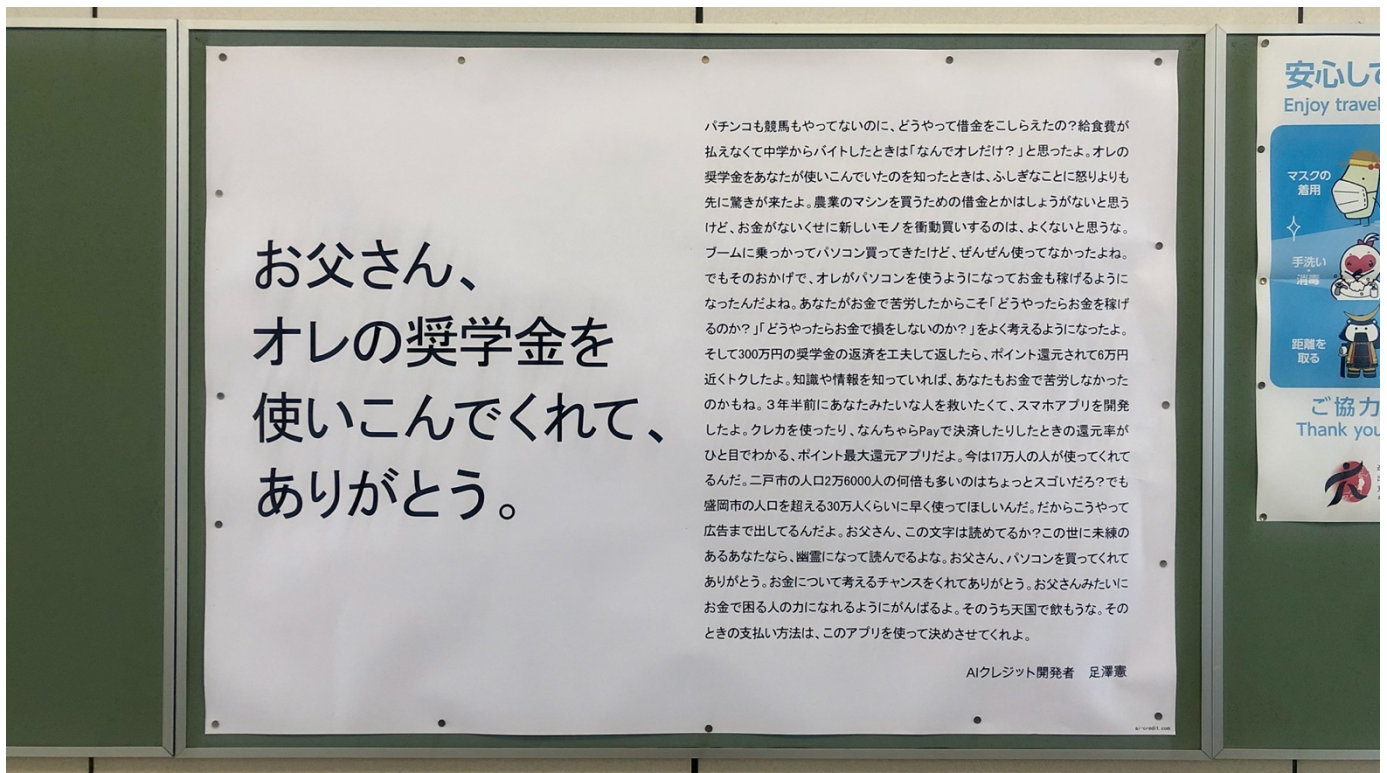 お父さん、
オレの奨学金を
使いこんでくれて、
ありがとう。
パチンコも競馬もやってないのに、どうやって借金をこしらえたの?給食費が
払えなくて中学からバイトしたときは「なんでオレだけ?」と思ったよ。オレの
奨学金をあなたが使いこんでいたのを知ったときは、ふしぎなことに怒りよりも
先に驚きが来たよ。農業のマシンを買うための借金とかはしょうがないと思う
けど、お金がないくせに新しいモノを衝動買いするのは、よくないと思うな。
ブームに乗っかってパソコン買ってきたけど、ぜんぜん使ってなかったよね。
でもそのおかげで、オレがパソコンを使うようになってお金も稼げるように
なったんだよね。あなたがお金で苦労したからこそ「どうやったらお金を稼げ
るのか?」「どうやったらお金で損をしないのか?」をよく考えるようになったよ。
そして300万円の奨学金の返済を工夫して返したら、ポイント還元されて6万円
近くトクしたよ。知識や情報を知っていれば、あなたもお金で苦労しなかった
のかもね。3年半前にあなたみたいな人を救いたくて、スマホアプリを開発
したよ。クレカを使ったり、なんちゃらPayで決済したりしたときの還元率が
ひと目でわかる、ポイント最大還元アプリだよ。今は17万人の人が使ってくれて
るんだ。二戸市の人口2万6000人の何倍も多いのはちょっとスゴいだろ?でも
盛岡市の人口を超える30万人くらいに早く使ってほしいんだ。だからこうやって
広告まで出してるんだよ。お父さん、この文字は読めてるか?この世に未練の
あるあなたなら、幽霊になって読んでるよな。お父さん、パソコンを買ってくれて
ありがとう。お金について考えるチャンスをくれてありがとう。お父さんみたいに
お金で困る人の力になれるようにがんばるよ。そのうち天国で飲もうな。その
ときの支払い方法は、このアプリを使って決めさせてくれよ。
AIクレジット開発者 足澤憲
ai-credit.com
安心して
Enjoy travel
マスクの
着用
手洗い
・
消毒
距離を
取る
ご協力
Thank you